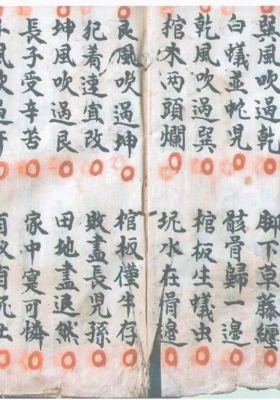 巽風吹過乾 脚下草藤纏
白蟻並蛇兒 骸骨歸一邊
乾風吹過巽 棺板生蟻虫
棺木兩頭爛 坭水在骨邊
艮風吹過坤 棺板僅半存
犯着速宜改 敗盡長兒孫
坤風吹過艮 田地盡退然
長子受辛苦 家中寞可憐
風吹過